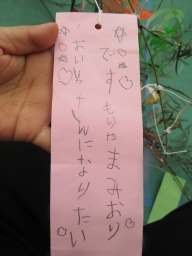 おいしゃさんになりたい
です もりやまみおり